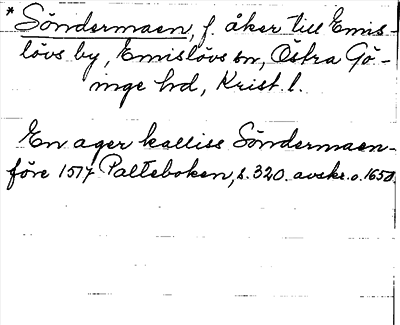 * Söndermaen, f. åker till Emis-
lövs by, Emislövs sn, Östra Gö-
inge hd, Krist. l.
En ager kalliss Söndermaen -
före 1517 Palteboken, s. 320. avskr. o. 1650.